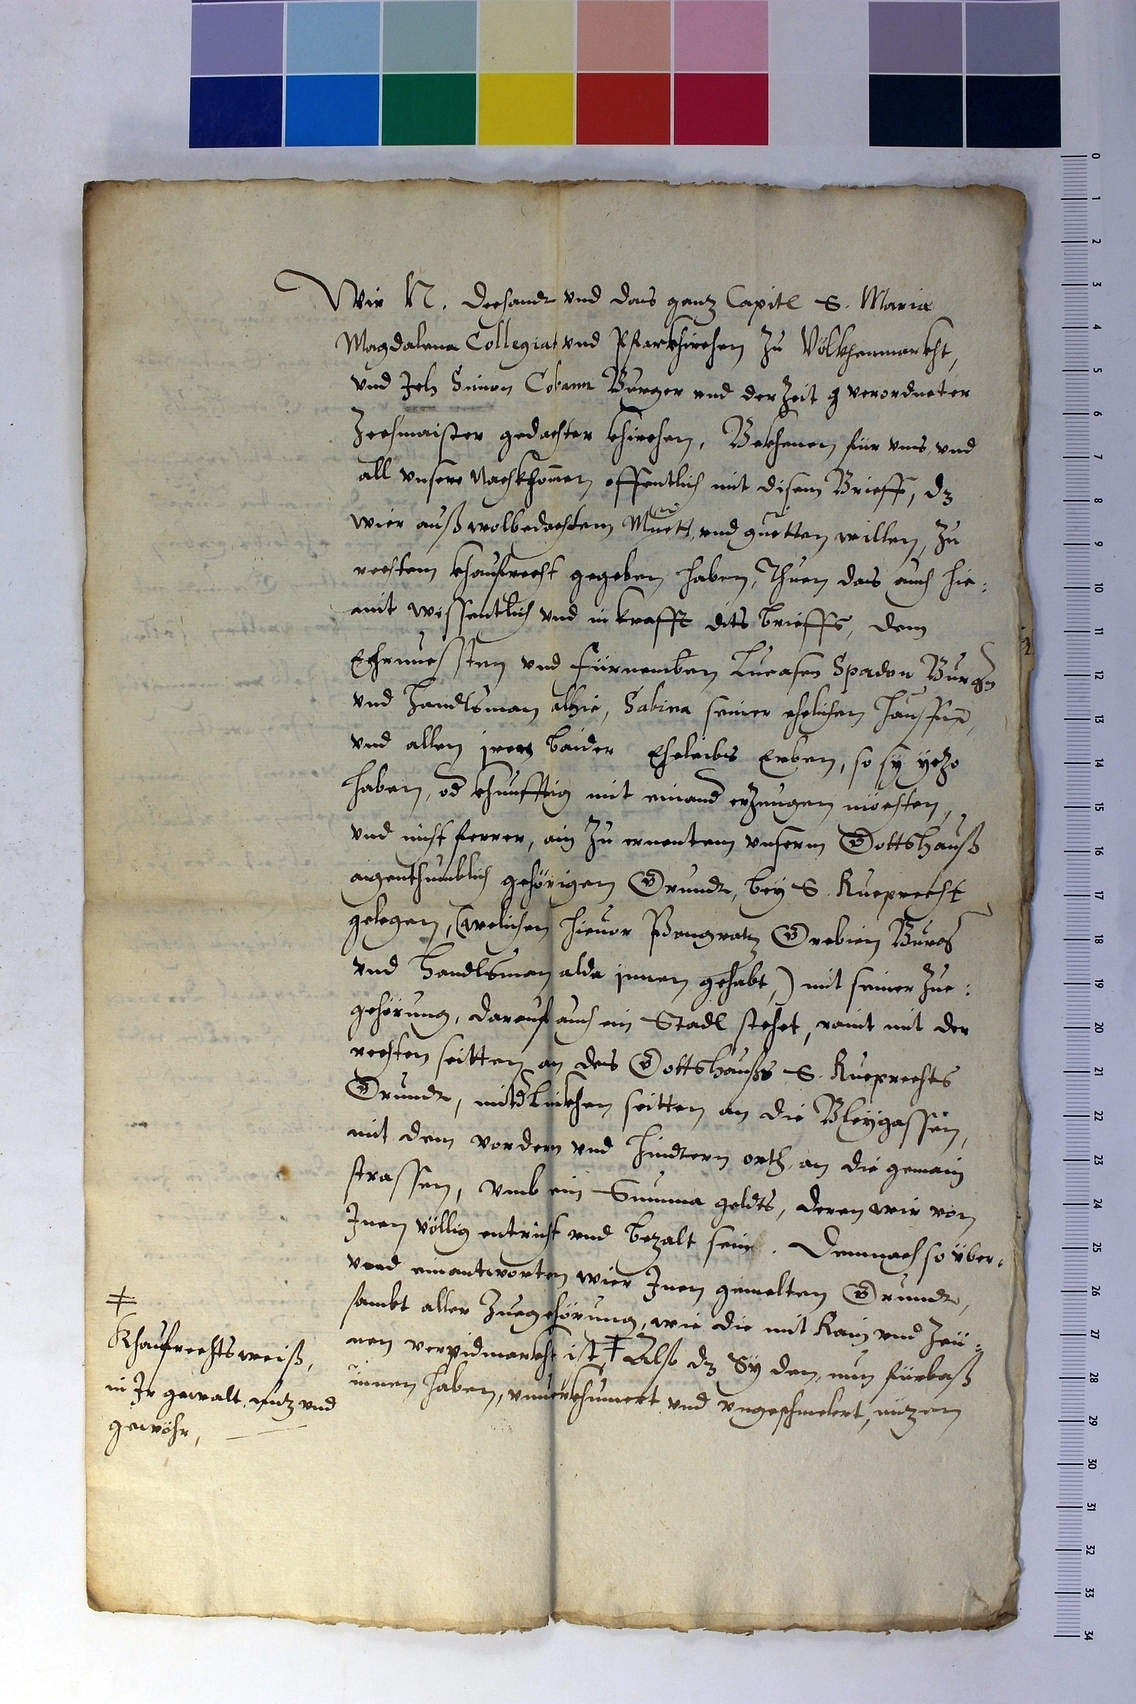 Wir N. Dechandt vnd das gantz Capitl S. Maria
Magdalena Collegiat vnd Pfarrkhirchen zu Völkhenmarkht,
vnd Ich Simon Cobann Burger vnd der Zeit verordneter
Zechmaister gedachter khirchen, Bekhenen für vnns vnd
all vnsere Nachkhomen offentlich mit disem Brieff, dz
wier auß wolbedachtem Muett vnd guetten willen, zu
rechtem khaufrecht gegeben haben, Thuen das auch hie:
mit wissentlich vnd in krafft dits brieffs, dem
Ehrnuessten vnd fürnemben Lucasen Spadon Burg̃
vnd Handlsman alhie, Sabina seiner ehelichen haussfr̃,
vnd allen jren baider Eheleibs Erben, so sy yezo
haben, od khunfftig mit einand erzeugen mechten,
vnd nicht ferrer, ain zu ernentem vnserm Gottshauß
aigenthumblich gehörigen Grundt, bey S. Rueprecht
gelegen, (welichen hieuor Pangratz Grebien Burg̃
vnd Handlsman alda jnnen gehabt,) mit seiner zue:
gehörung, darauf auch ein Stadl stehet, raint mit der
rechten seitten an des Gottshauß S. Rueprechts
Grundt, mit d̃ linkhen seitten an die Bleÿgassen,
mit dem vordern vnd hindtern orth, an die gemain
strassen, vmb ein Summa geldts, deren wir von
Inen völlig entricht vnd bezalt sein. Demnach so über:
vnd einantworten wier Inen gemelten Grundt,
sambt aller zuegehörung, wie die mit Rain vnd Zeü:
nen verpidmarkht ist ǂ Also dz Sy den, nun fürbaß
innen haben, vnuerkhumert vnd vngeschmelert, nutzen
ǂ
Khaufrechtsweiß,
in Ir gewalt nutz vnd
gewöhr,